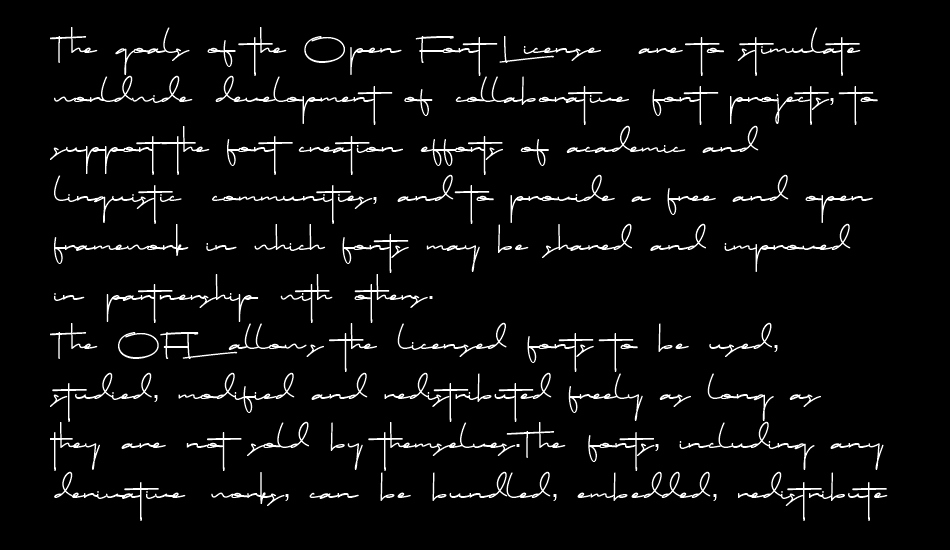 The goals of the Open Font License are to stimulate
worldwide development of collaborative font projects, to
support the font creation efforts of academic and
linguistic communities, and to provide a free and open
framework in which fonts may be shared and improved
in partnership with others.
The OFL allows the licensed fonts to be used,
studied, modified and redistributed freely as long as
they are not sold by themselves. The fonts, including any
derivative works, can be bundled, embedded, redistribute